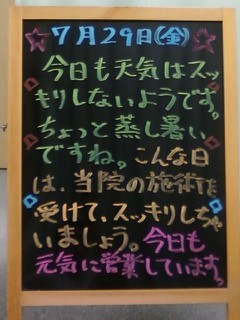 7月29日(金)
今日も天気はスッ
キリしないようです。
ちょっと蒸し暑い
ですね。こんな日
は、当院の施術を
受けて、スッキリしちゃ
いましょう。今日も
元気に営業しています。